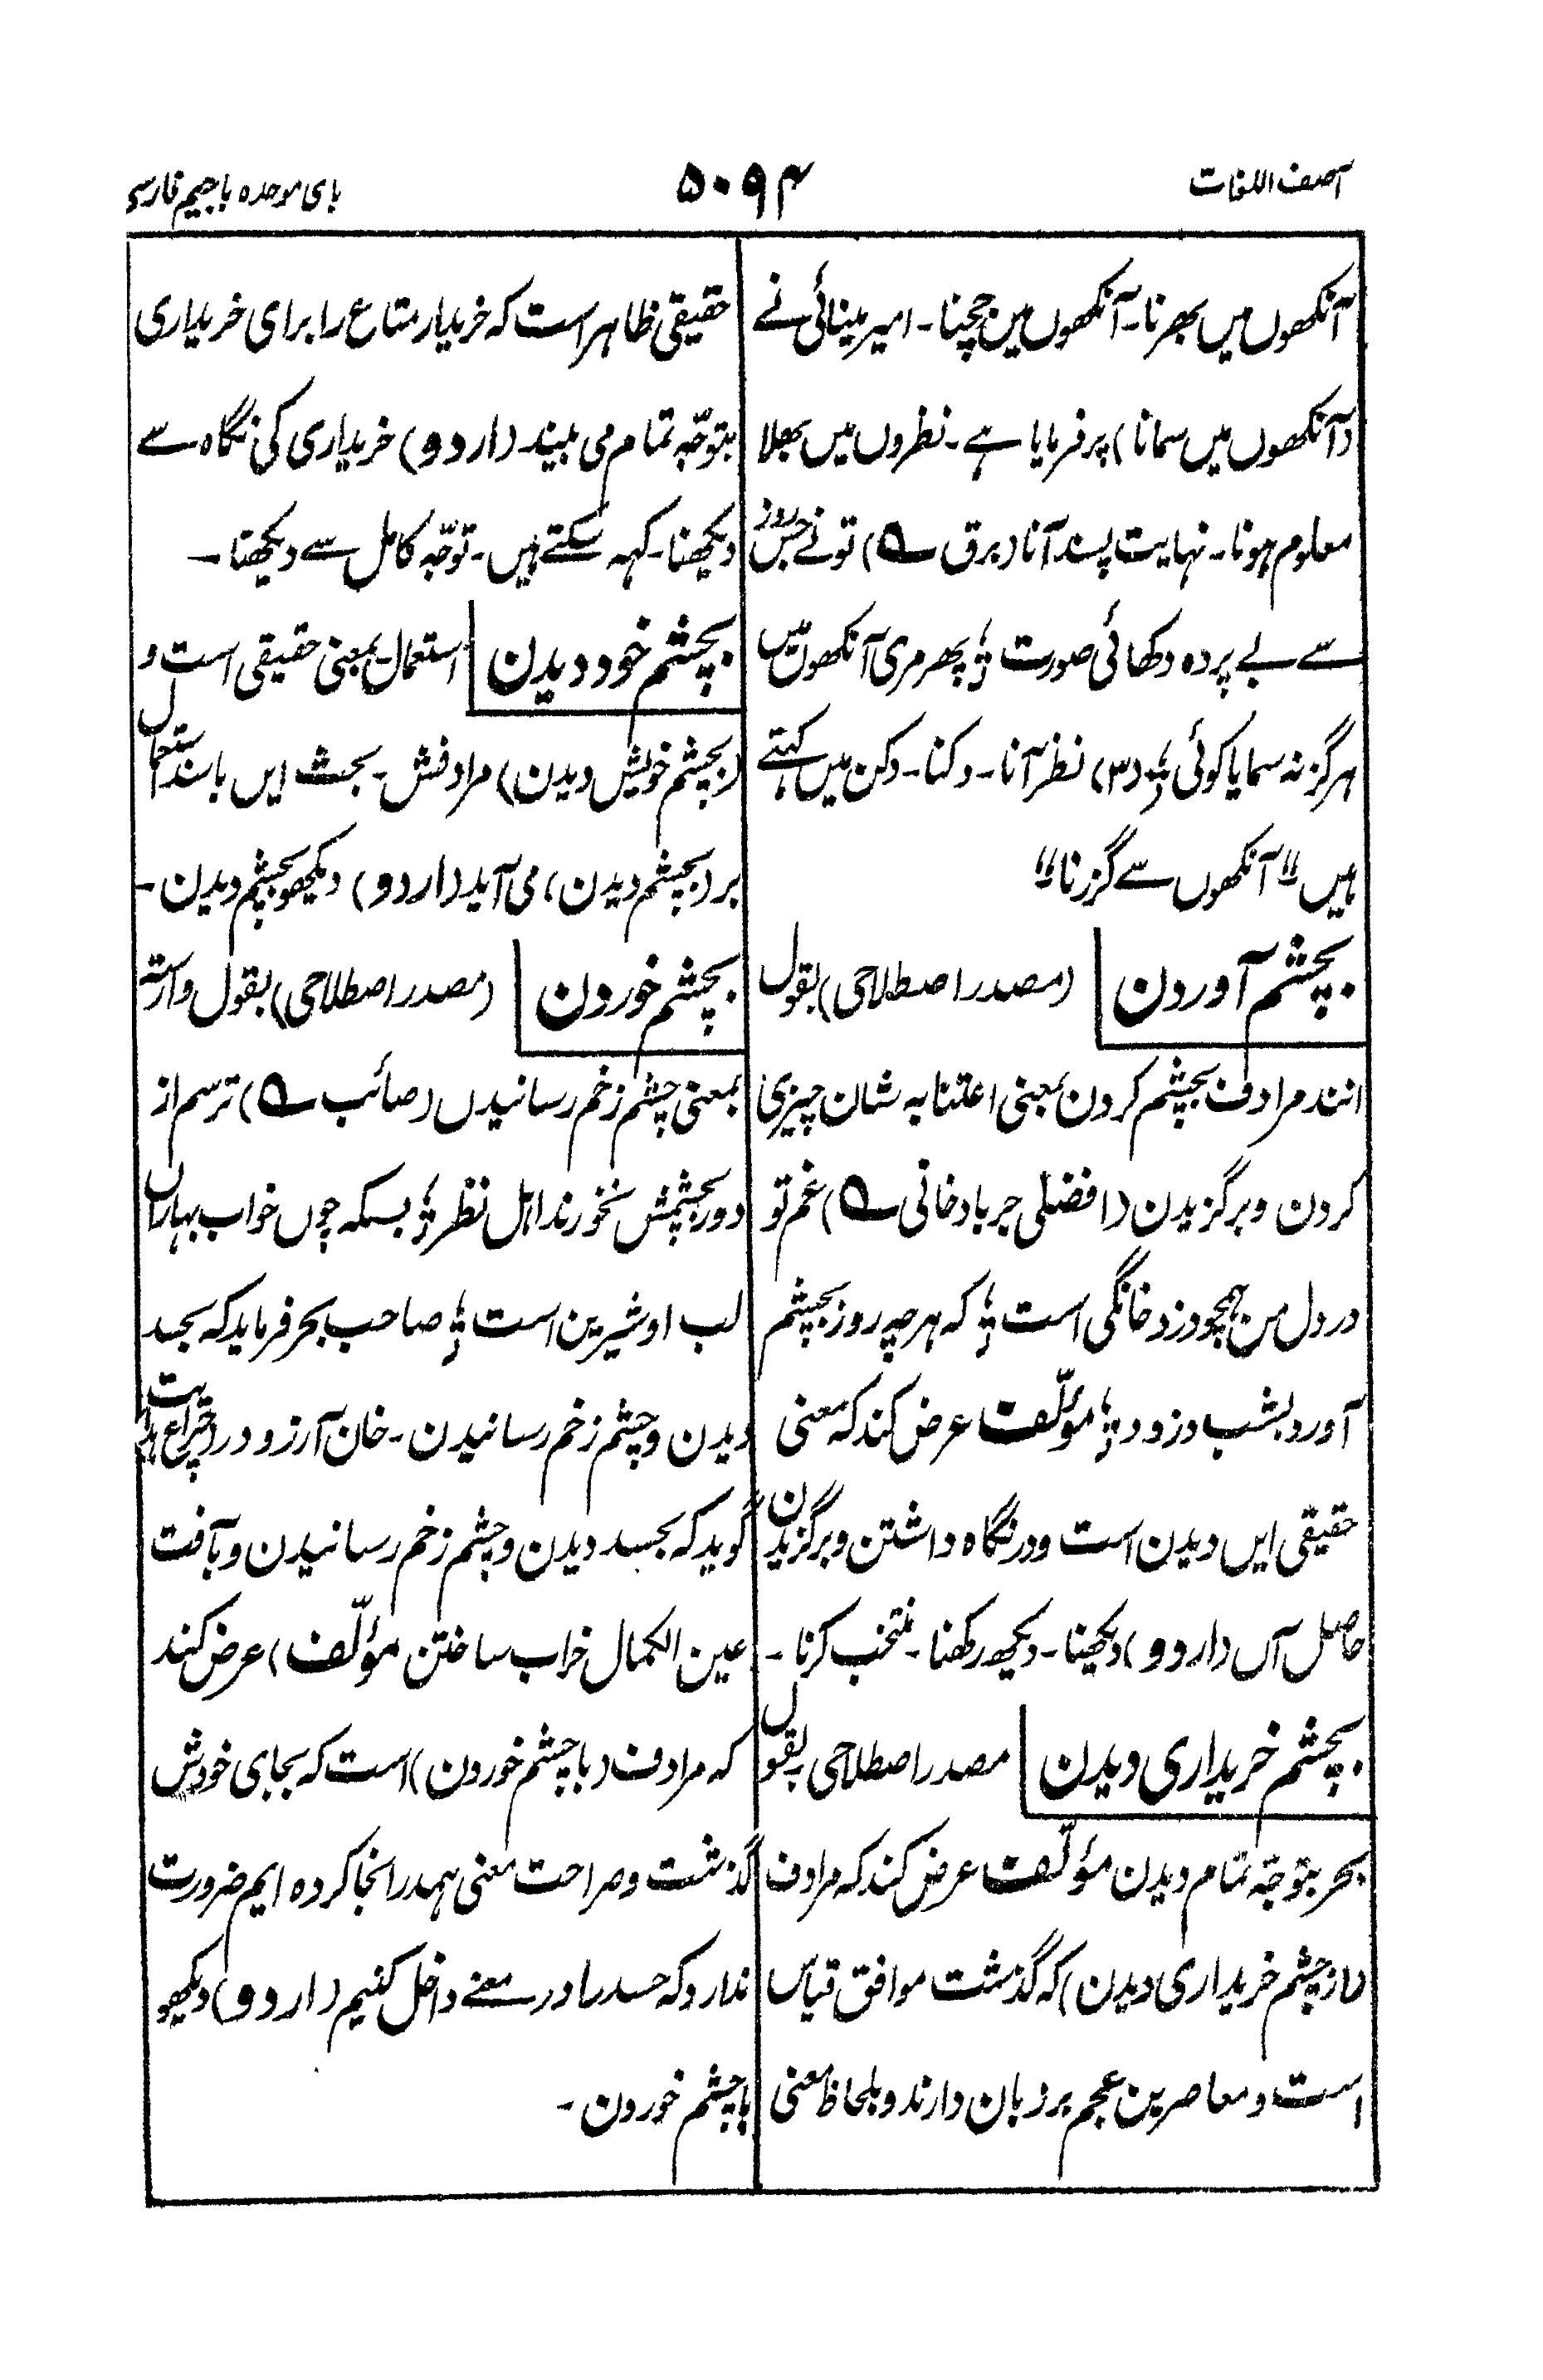 آصف اللغات
۵۰۹۴
بای موحده باجیم فارسی
آنکھوں میں بھرنا۔ آنکھوں میں جچنا۔ امیر مینائی نے
(آنکھوں میں سمانا) پر فرمایا ہے۔ نظروں میں بھلا
معلوم ہونا۔ نہایت پسند آنا (برق ؎) تونے جس روز
سے بے پردہ دکھائی صورت ؛ پھر مری آنکھوں میں
ہرگز نہ سمایا کوئی ؛ (۳) نظر آنا۔ دکنا۔ دکن میں کہتے
ہیں "آنکھوں سے گزرنا"
بچشم آوردن (مصدر اصطلاحی) بقول
انند مرادف بچشم کردن بمعنی اعتنا به شان چیزی
کردن و برگزیدن (افضلی جربادخانی ؎) غم تو
در دل من ہمچو دزد خانگی است ؛ که ہر چه روز بچشم
آورد بشب دزدد ؛ مؤلّف عرض کند که معنی
حقیقی ایں دیدن است و در نگاه داشتن و برگزیدن
حاصل آں (اردو) دیکھنا۔ دیکھ رکھنا۔ منتخب کرنا۔
بچشم خریداری دیدن مصدر اصطلاحی بقول
بحر بتوجّه تمام دیدن مؤلّف عرض کند که مرادف
(از چشم خریداری دیدن) که گذشت موافق قیاس
است و معاصرین عجم بر زبان دارند و بلحاظ معنی
حقیقی ظاہر است که خریدار متاع را برای خریداری
بتوجّه تمام می بیند (اردو) خریداری کی نگاه سے
دیکھنا۔ کہہ سکتے ہیں۔ توجّه کامل سے دیکھنا۔
بچشم خود دیدن استعمال۔ بمعنی حقیقی است و
(بچشم خویش دیدن) مرادفش۔ بحث ایں با سند استعمال
بر (بچشم دیدن) می آید (اردو) دیکھو بچشم دیدن۔
بچشم خوردن (مصدر اصطلاحی) بقول وارسته
بمعنی چشم زخم رسانیدں (صائب ؎) ترسم از
دور بچشمش نخورند اہل نظر ؛ بسکه چوں خواب بہاراں
لب او شیرین است ؛ صاحب بحر فرماید که بحسد
دیدن و چشم زخم رسانیدن۔ خان آرزو در (چراغ ہدایت
گوید که بحسد دیدن و چشم زخم رسانیدن و بآفت
عین الکمال خراب ساختن مؤلّف) عرض کند
که مرادف (با چشم خوردن) است که بجای خودش
گذشت و صراحت معنی ہمدرانجا کرده ایم ضرورت
ندارد که حسد را در معنے داخل کنیم (اردو) دیکھو
با چشم خوردن۔